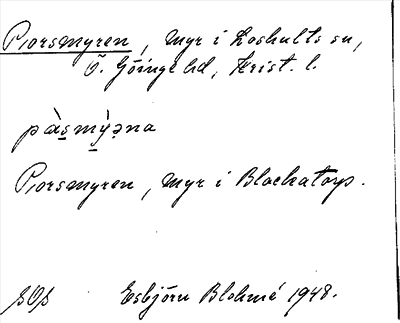 Porsmyren, myr i Loshults sn,
Ö. Göinge hd, Krist. l.
pàs̠mỳ̠əna
Porsmyren, myr i Blackatorp.
Esbjörn Blohmé 1948.